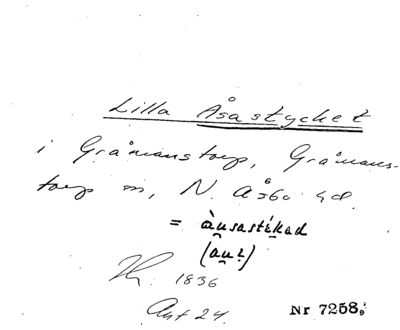 Lilla Åsastycket
i Gråmanstorp, Gråmans-
torp sn, N. Åsbo hd.
= àu̯sastikad
(au̯2)
1836
Ant 24.
Nr 7258.